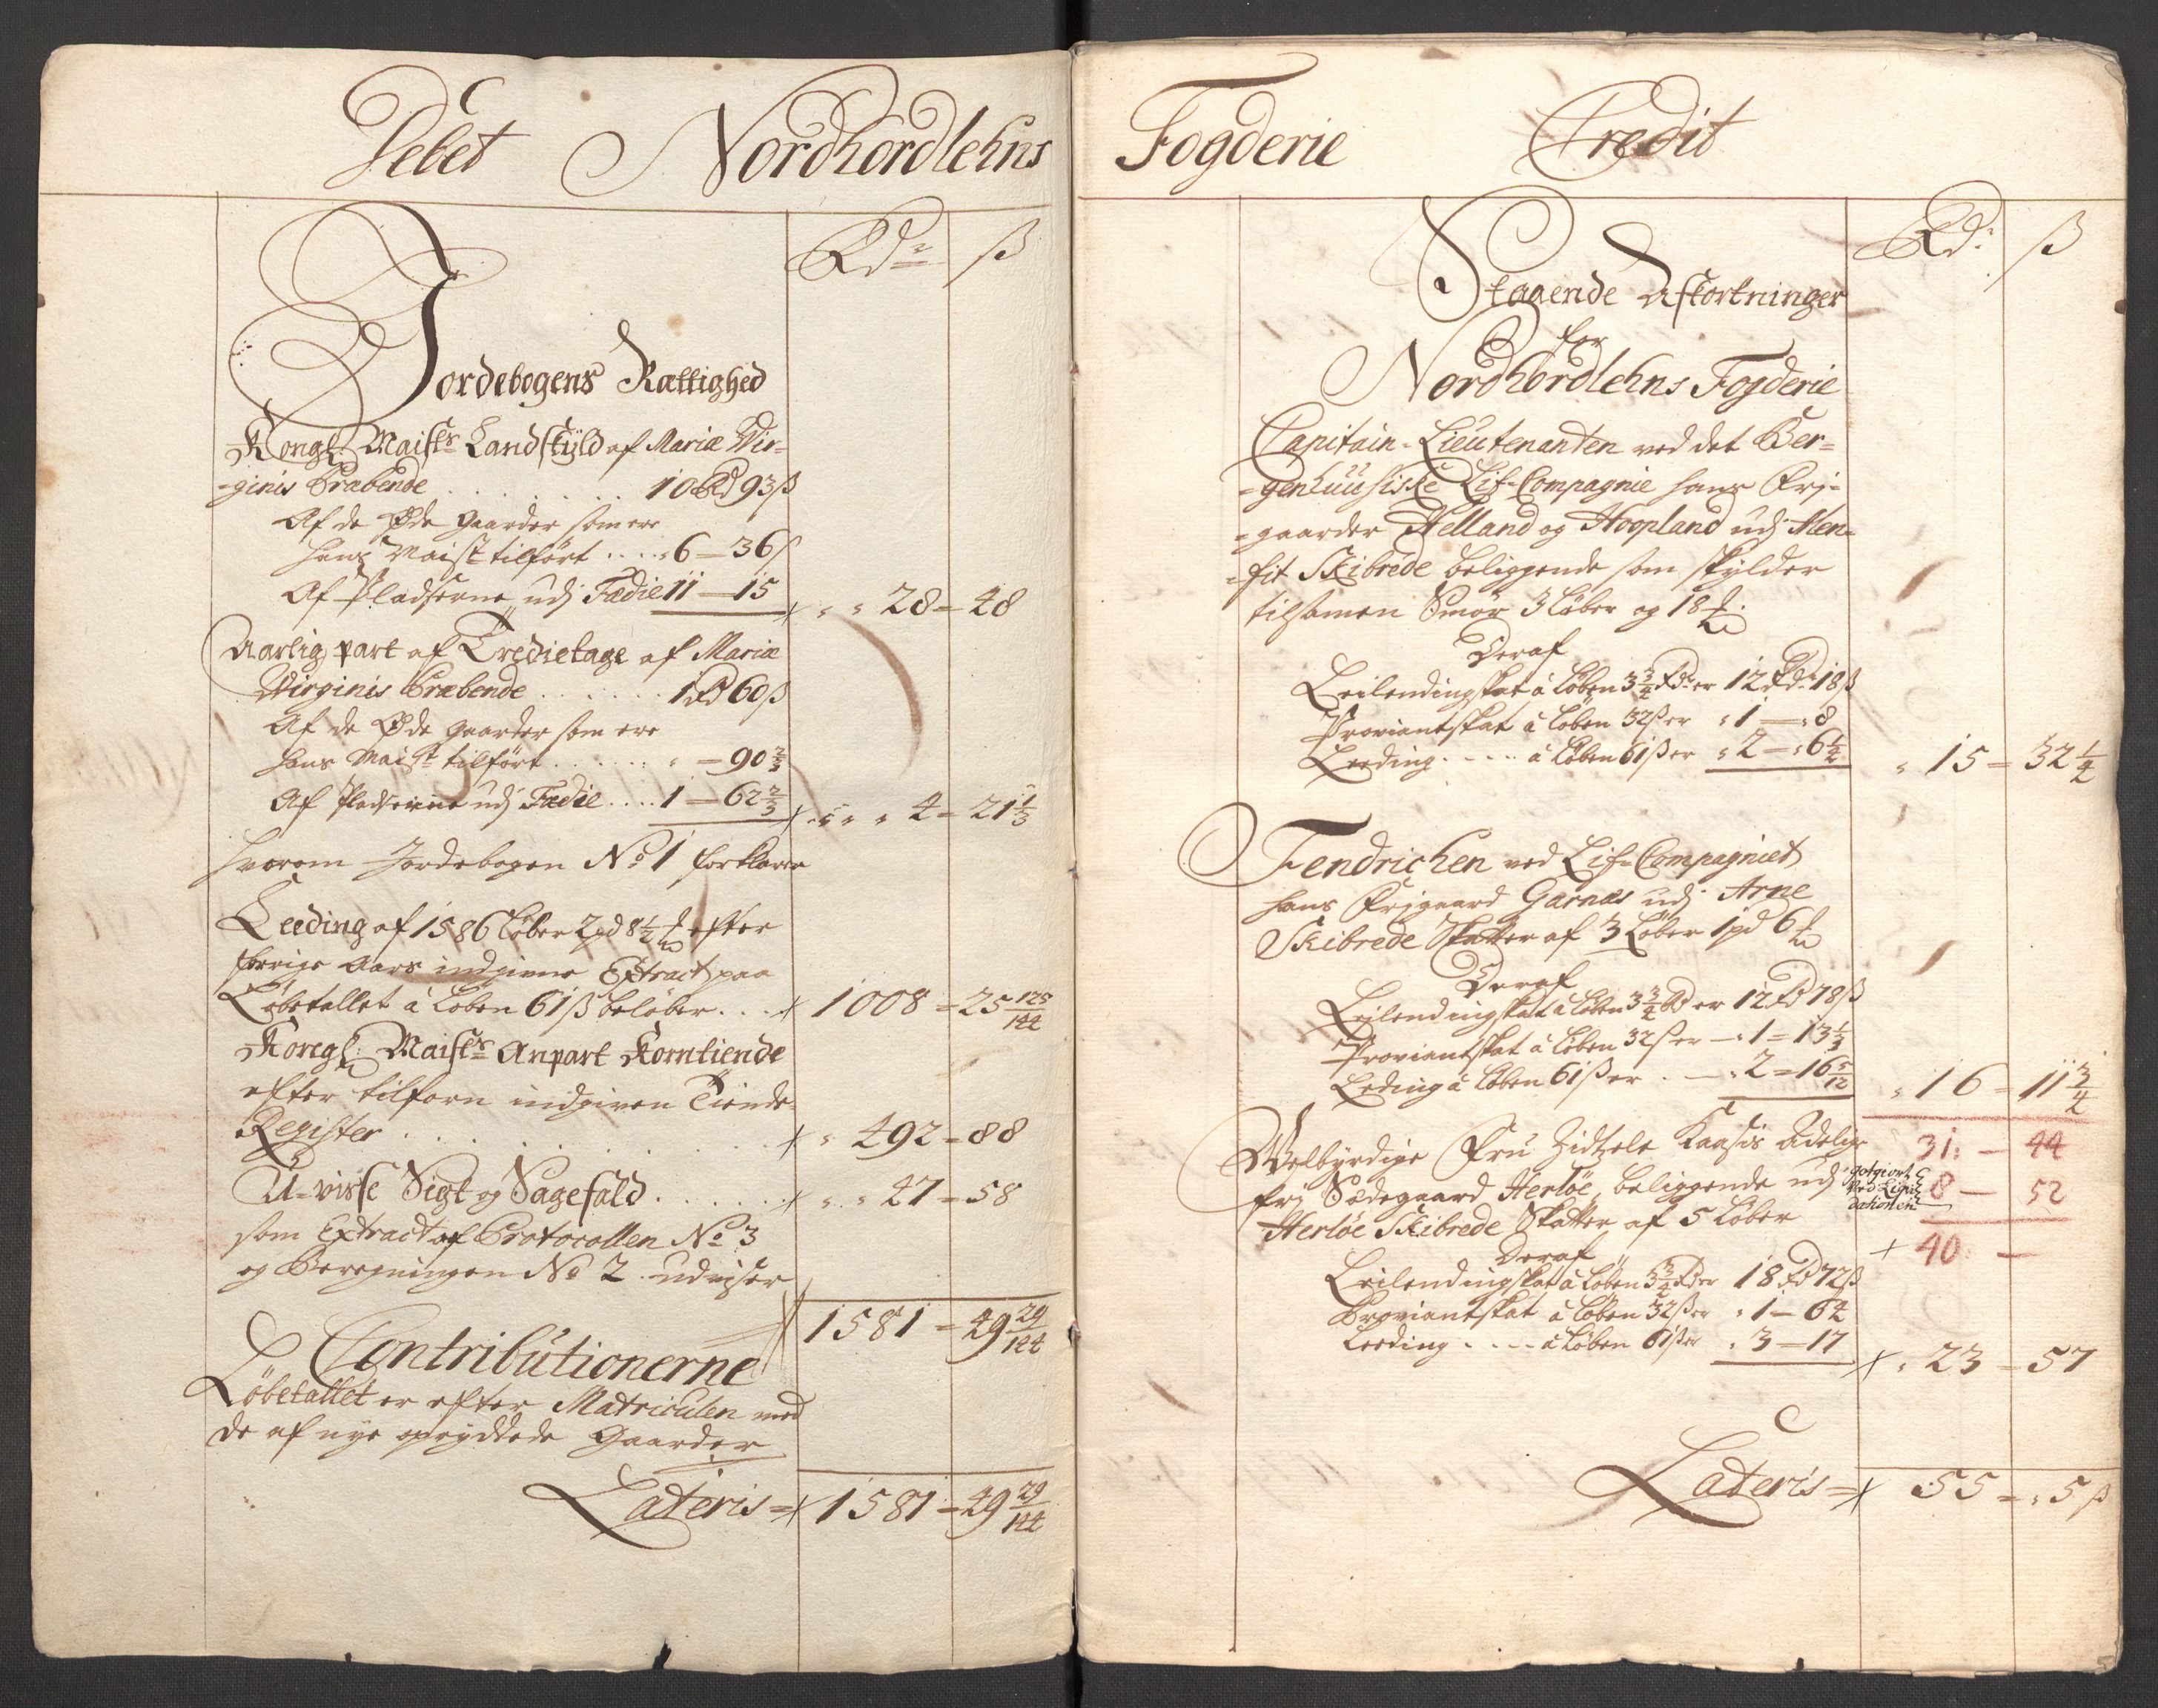 Debet Nordhordlehns
Rdr ß
Jordebogens Rættighed
Kongl: Maists Landskÿld af Mariæ Vir-
-ginis Præbende . . . . . . . 10 Rd 93 ß
Af de Øde gaarder som ere
hans Maist tilført . . . . 6 — 36 ß
Af Pladserne udj Fædie 11 — 15 28 = 48
Aarlig part af Tredietage af Mariæ
Virginis Præbende . . . . . . 1 Rd 60 ß
Af de Øde gaarder som ere
hans Maist tilført . . . . . — 90 2/3
Af Pladserne udj Fædie . . . . 1 — 62 2/3 4 = 21 1/3
hvorom Jordebogen No 1 forklarer
Leeding af 1586 Løber 2 pd 8 1/2 efter
forrige Aars indgivne Extract paa
Løbetallet à Løben 61 ß beløber . . . 1008 = 25 125/144
Kongl: Maists Anpart Korntiende
efter tilforn indgiven Tiende-
Register . . . . . . 492 = 88
U-visse Sigt og Sagefald . . . . . 47 = 58
som Extract af Protocollen No 3
og Beregningen No 2 udviser
1581 = 49 29/144
Contributionerne
Løbetallet er efter Matriculen med
de af nye opryddede Gaarder
Lateris = 1581 = 49 29/144
Fogderie Credit
Rdr ß
Staaende Afkortninger
for
Nordhordlehns Fogderie
Capitain-Lieutenanten ved det Ber-
-genhuusiske Lif-Compagnie hans Frj-
-gaarder Helland og Hoopland udj Men-
-fit Skibrede beliggende som skylder
tilsamen Smør 3 Løber og 18
Deraf
Leilendingskat à Løben 3 3/4 Rdr er 12 Rdr 18 ß
Proviantskat à Løben 32 ß er 1 — 8
Leeding . . . . à Løben 61 ß er 2 — 6 1/4 15 = 32 1/4
Fendrichen ved Lif-Compagniet
hans Frjgaard Garnæs udj Arne
Skibrede Skatter af 3 Løber 1 pd 6
Deraf
Leilendingskat à Løben 3 3/4 Rd er 12 Rd 78 ß
Proviantskat à Løben 32 ß er — 1 = 13 1/3
Leding à Løben 61 ß er . — 2 = 16 5/12 16 = 11 3/4
Welbyrdige Fru Zidtzele Kaasis Adelige 31: — 44
frj Sædegaard Herløe, beliggende udj godgiort ved Liqvidationen 8 — 52
Herløe Skibrede Skatter af 5 Løber
40 —
Deraf
Leilendingskat à Løben 3 3/4 Rd er 18 Rd 72 ß
Proviantskat à Løben 32 ß er 1 — 64
Leeding . . . . à Løben 61 ß er 3 — 17 23 = 57
Lateris = 55 = 5 ß